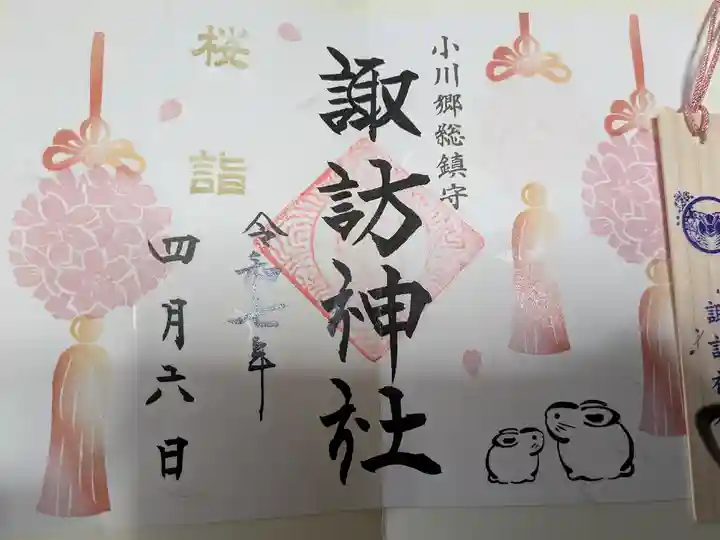 小川郷総鎮守
諏訪神社
桜詣
令和七年
四月六日
諏訪神